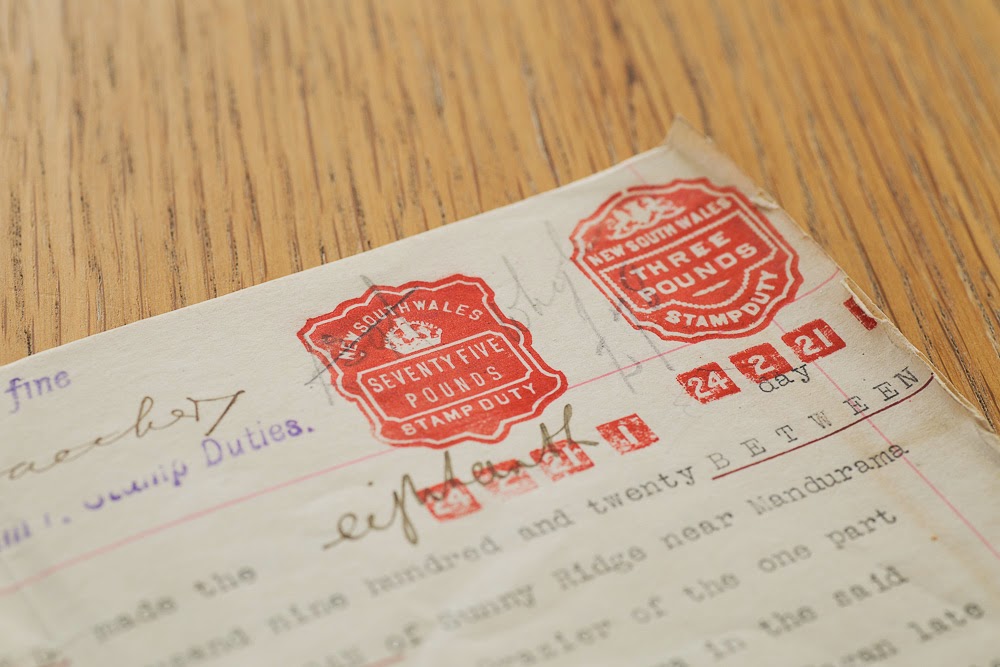 NEW SOUTH WALES
THREE
POUNDS
STAMP DUTY
NEW SOUTH WALES
SEVENTY FIVE
POUNDS
STAMP DUTY
24 2 21
fine
Stamp Duties.
24 2 21 1
eighteenth day
made the
nine hundred and twenty BETWEEN
of Sunny Ridge near Mandurama
Grazier of the one part
in the said
late